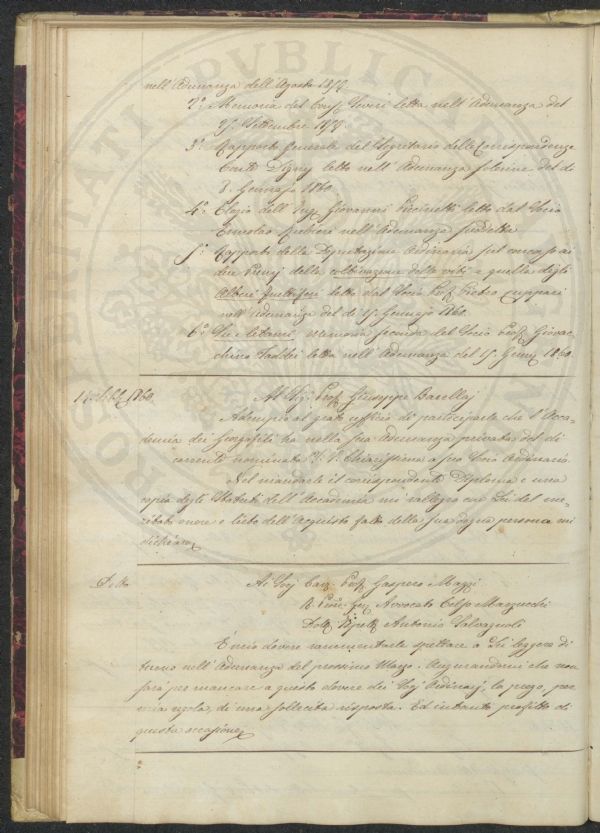 nell'Adunanza dell'Agosto 1859
2.° Memoria del Conf. Siveri letta nell'Adunanza del
25. Settembre 1859.
3.° Rapporto Generale del Segretario delle Corrispondenze
Conte Digny letto nell'Adunanza solenne del dì
8. Gennajo 1860.
4.° Elogio dell'Ing. Giovanni Pucinelli letto dal Socio
Ermolao Rubieri nell'Adunanza suddetta
5.° Rapporto della Deputazione Ordinaria sul concorso ai
due Premj della coltivazione delle viti e quella degli
Alberi fruttiferi letto dal Socio Prof. Pietro Cuppari
nell'Adunanza del dì 15. Gennajo 1860.
6.° Sui letami memoria seconda del Socio Prof. Giovac
chino Taddei letta nell'Adunanza del 15. Genn. 1860.
1860. Al Sig. Prof. Giuseppe Barellaj
Adempio al grato ufficio di parteciparle che l'Acca-
demia dei Georgofili ha nella sua Adunanza privata del dì
corrente nominata V. S. Chiarissima a suo Socio Ordinario.
Nel mandarle il corrispondente Diploma e una
copia degli Statuti dell'Accademia mi rallegro con Lei del me-
ritato onore e lieto dell'Acquisto fatto della sua degna persona mi
dichiaro
Detto Ai Sigg. Cav. Prof. Gaspero Mazzi
R. Proc. Gen. Avvocato Celso Marzucchi
Dott. Ispett. Antonio Salvagnoli
È mio dovere rammentarle spettare a Lei leggere di
turno nell'Adunanza del prossimo Marzo. Augurandomi che non
sarà per mancare a questo dovere dei Sogj Ordinarj, la prego, per
mia regola, di una sollecita risposta. Ed intanto profitto di
questa occasione